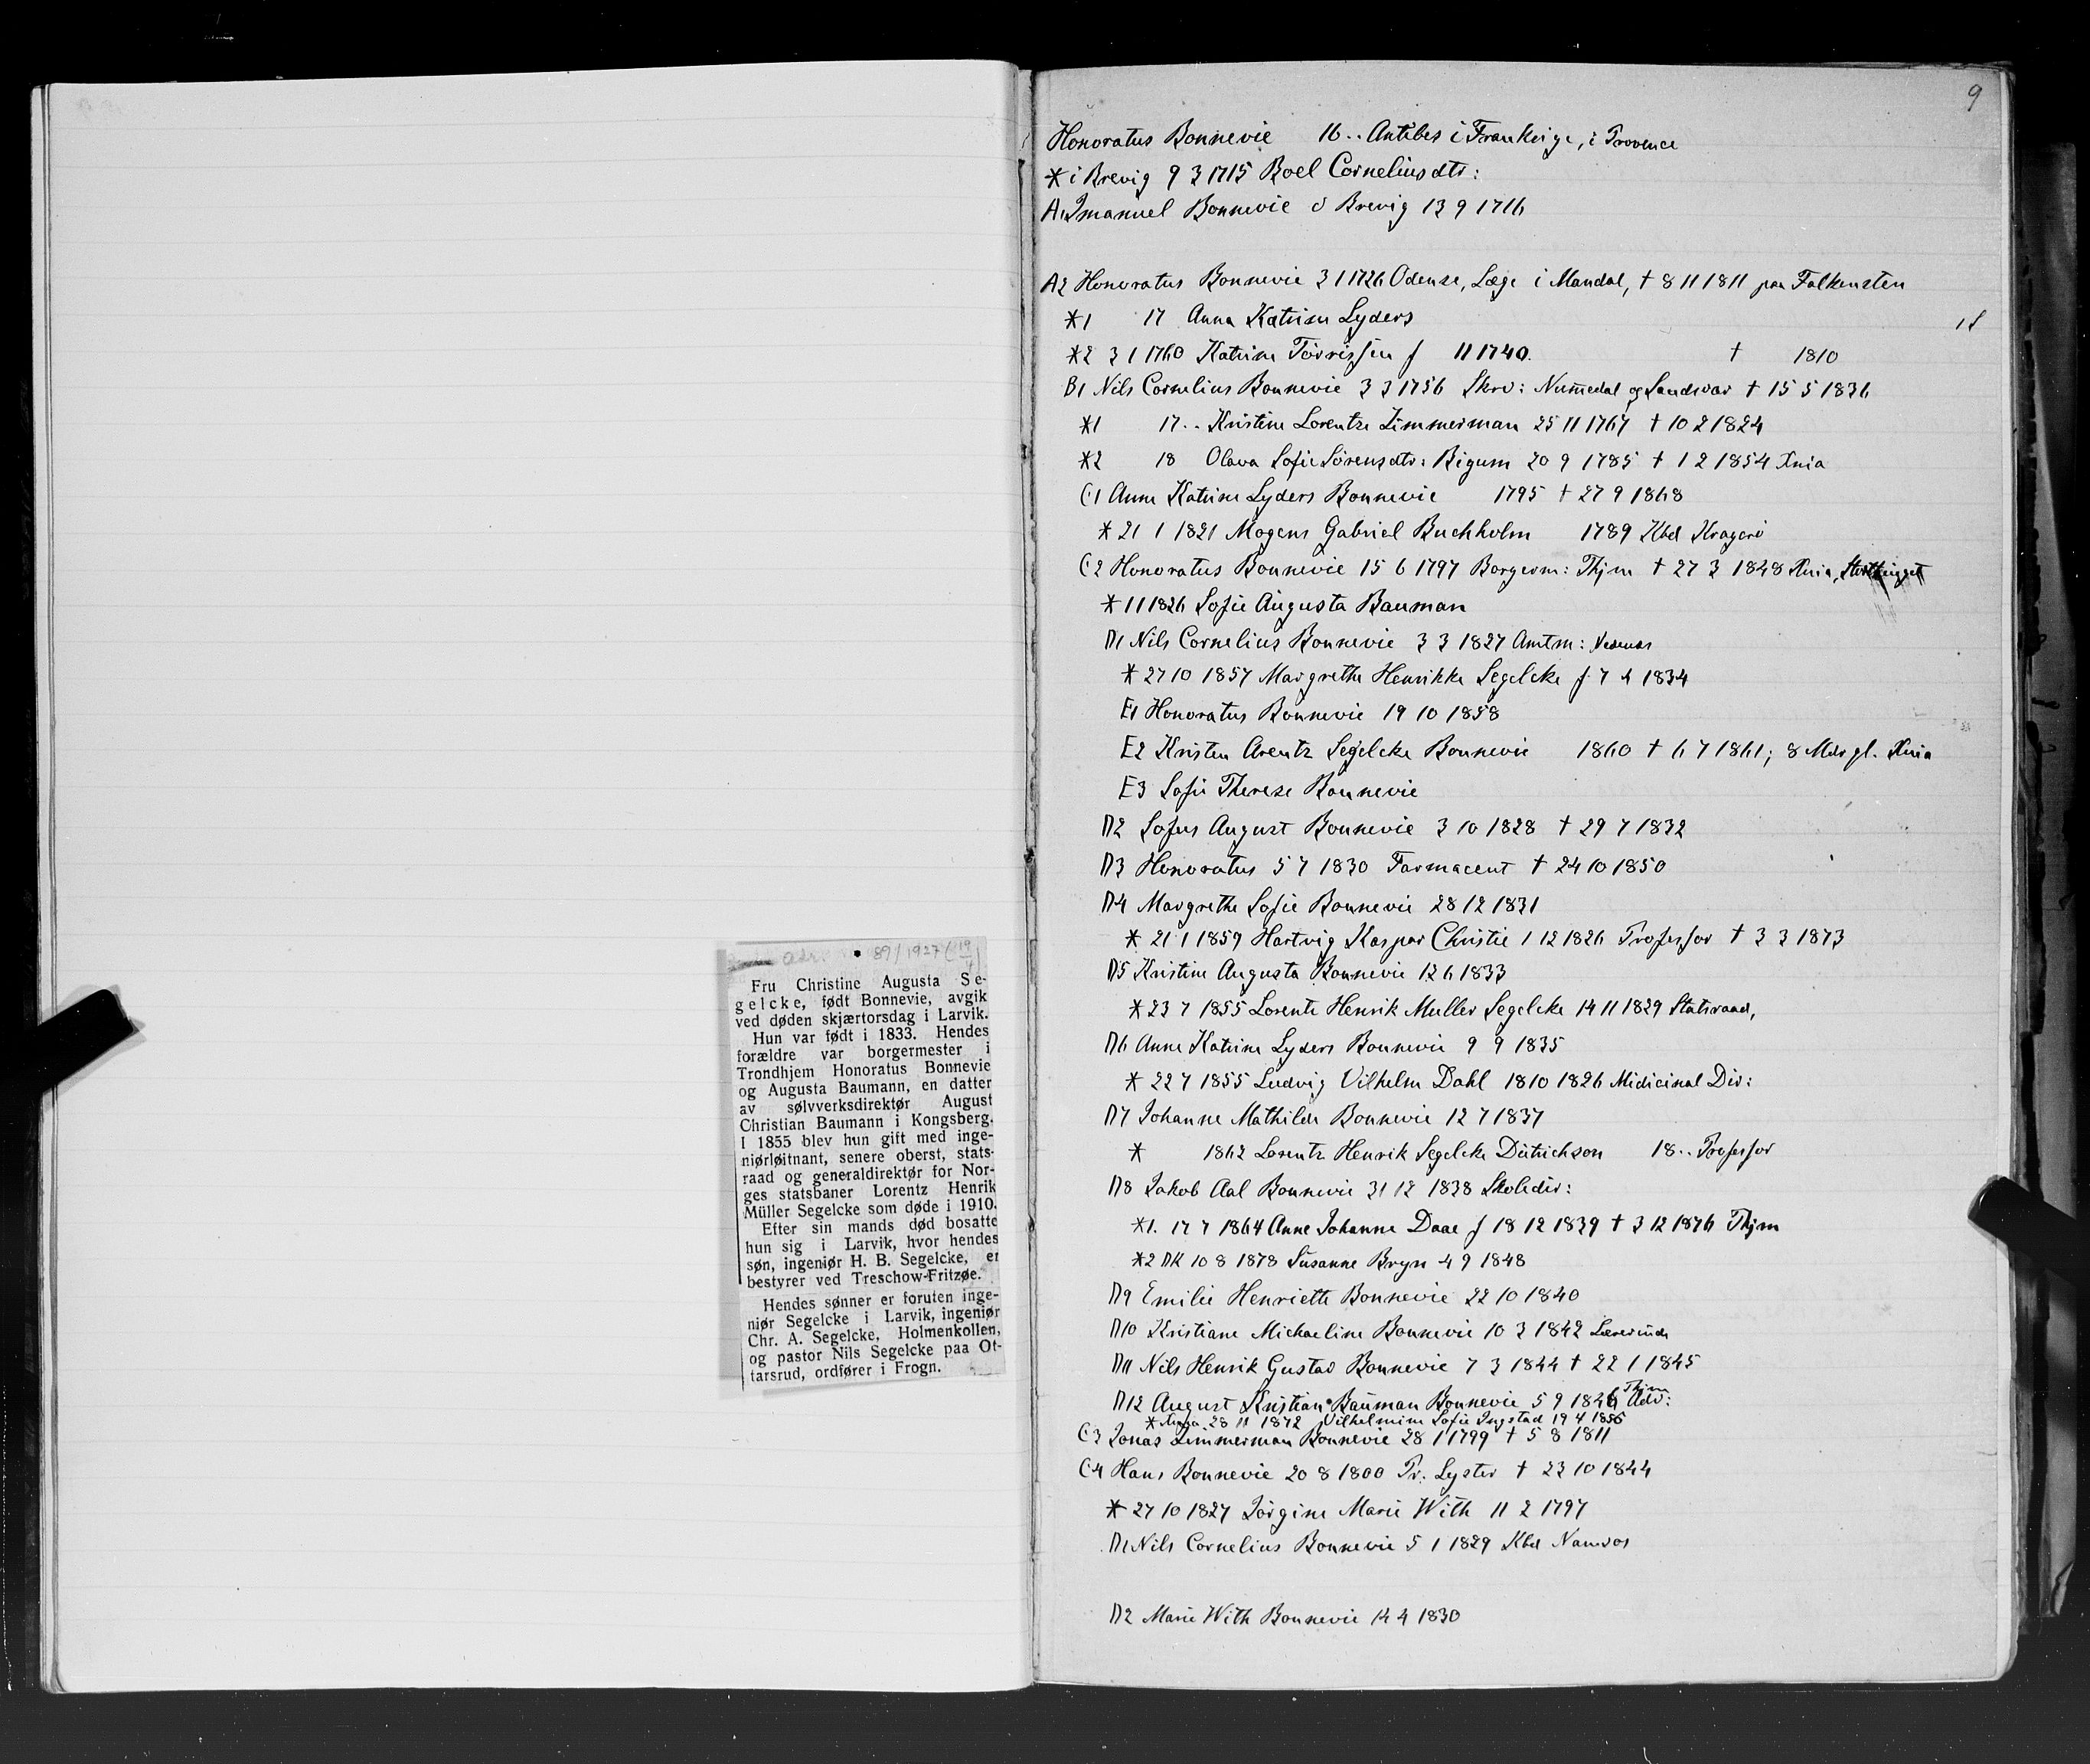 89/1927 (19/4)
Fru Christine Augusta Se-
gelcke, født Bonnevie, avgik
ved døden skjærtorsdag i Larvik.
Hun var født i 1833. Hendes
forældre var borgermester i
Trondhjem Honoratus Bonnevie
og Augusta Baumann, en datter
av sølvverksdirektør August
Christian Baumann i Kongsberg.
I 1855 blev hun gift med inge-
niørløitnant, senere oberst, stats-
raad og generaldirektør for Nor-
ges statsbaner Lorentz Henrik
Müller Segelcke som døde i 1910.
Efter sin mands død bosatte
hun sig i Larvik, hvor hendes
søn, ingeniør H. B. Segelcke, er
bestyrer ved Treschow-Fritzøe.
Hendes sønner er foruten inge-
niør Segelcke i Larvik, ingeniør
Chr. A. Segelcke, Holmenkollen,
og pastor Nils Segelcke paa Ot-
tarsrud, ordfører i Frogn.
9
Honoratus Bonnevie 16.. Antibes i Frankrige, i Provence
* i Brevig 9 3 1715 Boel Corneliusdtr:
A1 Imanuel Bonnevie d Brevig 13 9 1716
A2 Honoratus Bonnevie 3 1 1726 Odense, Læge i Mandal, † 8 11 1811 paa Falkensten
*1 17 Anna Katrine Lyders 18
*2 3 1 1760 Katrine Törrissen f 11 1740. † 1810
B1 Nils Cornelius Bonnevie 3 3 1756 Skrv: Numedal og Sandsvær † 15 5 1836
*1 17.. Kristine Lorentze Zimmerman 25 11 1767 † 10 2 1824
*2 18 Olava Sofie Sörensdtr: Bigum 20 9 1785 † 1 2 1854 Xnia
C1 Anne Katrine Lyders Bonnevie 1795 † 27 9 1868
* 21 1 1821 Mogens Gabriel Buchholm 1789 Kbd Kragerö
C2 Honoratus Bonnevie 15 6 1797 Borgerm: Thjm † 27 3 1848 Xnia, Storthinget
* 1 1 1826 Sofie Augusta Bauman
D1 Nils Cornelius Bonnevie 3 3 1827 Amtm: Nedenæs
* 27 10 1857 Margrethe Henrikke Segelcke f 7 4 1834
E1 Honoratus Bonnevie 19 10 1858
E2 Kristen Arentz Segelcke Bonnevie 1860 † 6 7 1861; 8 Mdr gl. Xnia
E3 Sofie Therese Bonnevie
D2 Sofus August Bonnevie 3 10 1828 † 29 7 1832
D3 Honoratus 5 7 1830 Farmaceut † 24 10 1850
D4 Margrethe Sofie Bonnevie 28 12 1831
* 21 1 1859 Hartvig Kaspar Christie 1 12 1826 Professor † 3 3 1873
D5 Kristine Augusta Bonnevie 12 6 1833
* 23 7 1855 Lorentz Henrik Muller Segelcke 14 11 1829 Statsraad,
D6 Anne Katrine Lyders Bonnevie 9 9 1835
* 22 7 1855 Ludvig Vilhelm Dahl 18 10 1826 Midicinal Dir:
D7 Johanne Mathilde Bonnevie 12 7 1837
* 1862 Lorentz Henrik Segelcke Dietrichson 18.. Professor
D8 Jakob Aal Bonnevie 31 12 1838 Skoledir:
*1. 17 7 1864 Anne Johanne Daae f 18 12 1839 † 3 12 1876 Thjm
*2 DK 10 8 1878 Susanne Bryn 4 9 1848
D9 Emilie Henriette Bonnevie 22 10 1840
D10 Kristiane Michaeline Bonnevie 10 3 1842 Lærerinde
D11 Nils Henrik Gustav Bonnevie 7 3 1844 † 22 1 1845
D12 August Kristian Bauman Bonnevie 5 9 1846 Thjm Adv:
* 28 11 1872 Vilhelmine Sofie Ingstad 19 4 1856
C3 Jonas Zimmerman Bonnevie 28 1 1799 † 5 8 1811
C4 Hans Bonnevie 20 8 1800 Pr. Lyster † 23 10 1844
* 27 10 1827 Jörgine Marie With 11 2 1797
D1 Nils Cornelius Bonnevie 5 1 1829 Kbd Namsos
D2 Marie With Bonnevie 14 4 1830